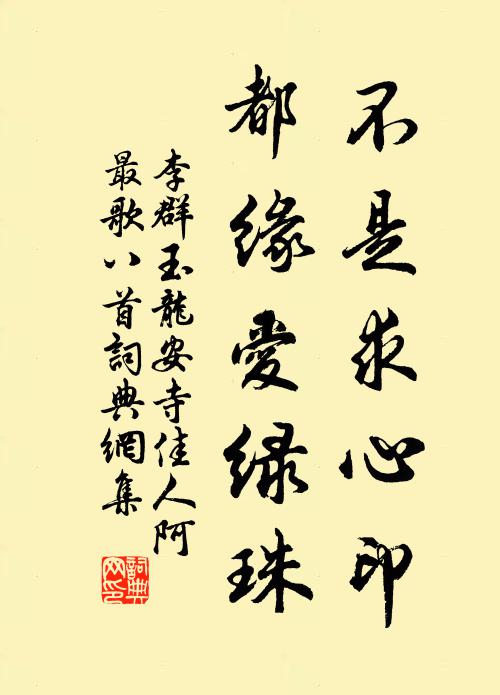 不是求心印
都緣愛綠珠
李群玉龍安寺佳人阿
最歌八首詞典網集
詞典网印